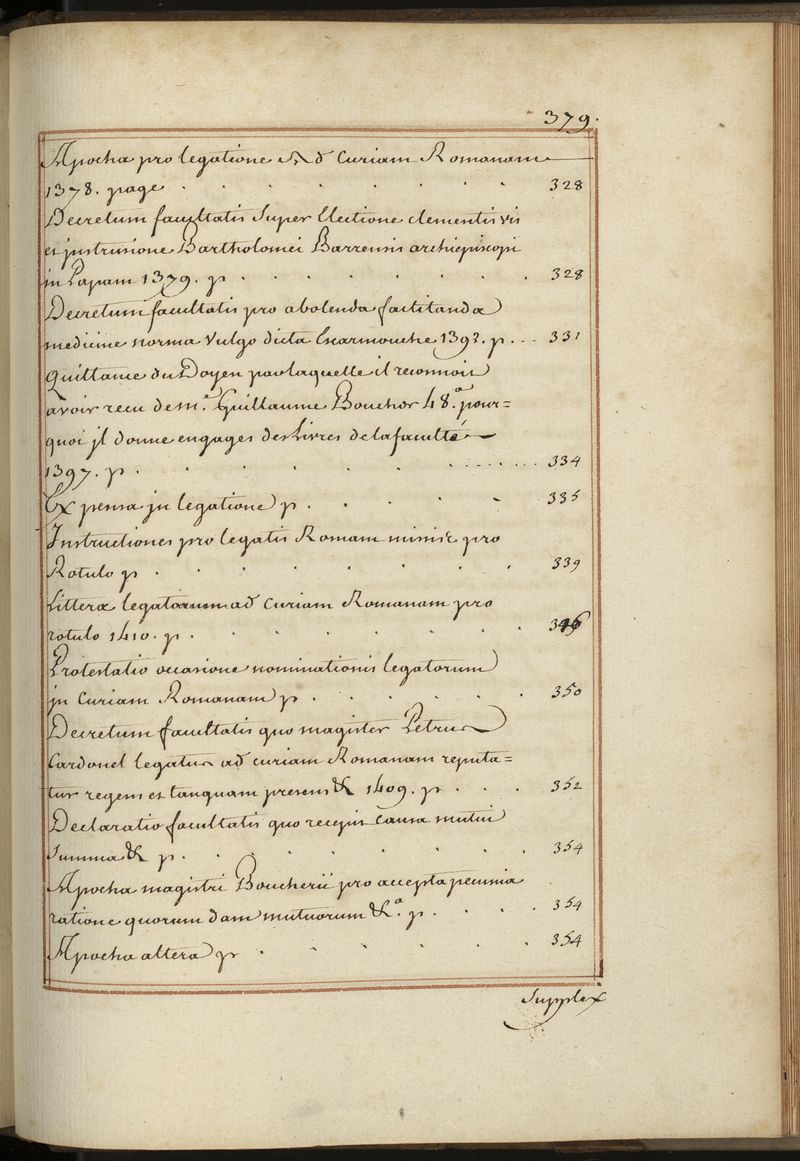 379.
Apocha pro legatione Ad Curiam Romanam
1378. page . . . . . . . . 328
Decretum facultatis Super Electione clementis vii
et jntrusione Bartholomei Barrensis archiepiscopi
in Papam 1379. p . . . . . . . . 328
Decretum facultatis pro abolenda factitandæ
medicine norma Vulgo dicta Escarmouche 139?. p . ... 331
Quittance du Doyen par laquelle il reconnoit
avoir recu de m.e Guillaume Boucher 48.a pour=
quoi jl donne en gages des Livres de la faculté
1397. p . . . . . . . . 334
Expensa jn legatione p . . . . . 335
Instructiones pro legatis Romam missis pro
Rotulo p . . . . . . . . 339
Litteræ legatorum ad Curiam Romanam pro
rotulo 1410. p . . . . . . . .
Protestatio occasione nominationis legatorum
jn Curiam Romanam p . . . . . . 350
Decretum facultatis quo magister Petrus
Cardonel legatus ad curiam Romanam reputa=
tur regens et tanquam presens & 1409. p . . . 352
Declaratio facultatis quo recepit causa mutui
Summa & p . . . . . . . . 354
Apocha magistri Boucherii pro accepta pecunia
ratione quorum dam mutuorum &.a p . . . . 354
Apocha altera p . . . . . . 354
Supplex